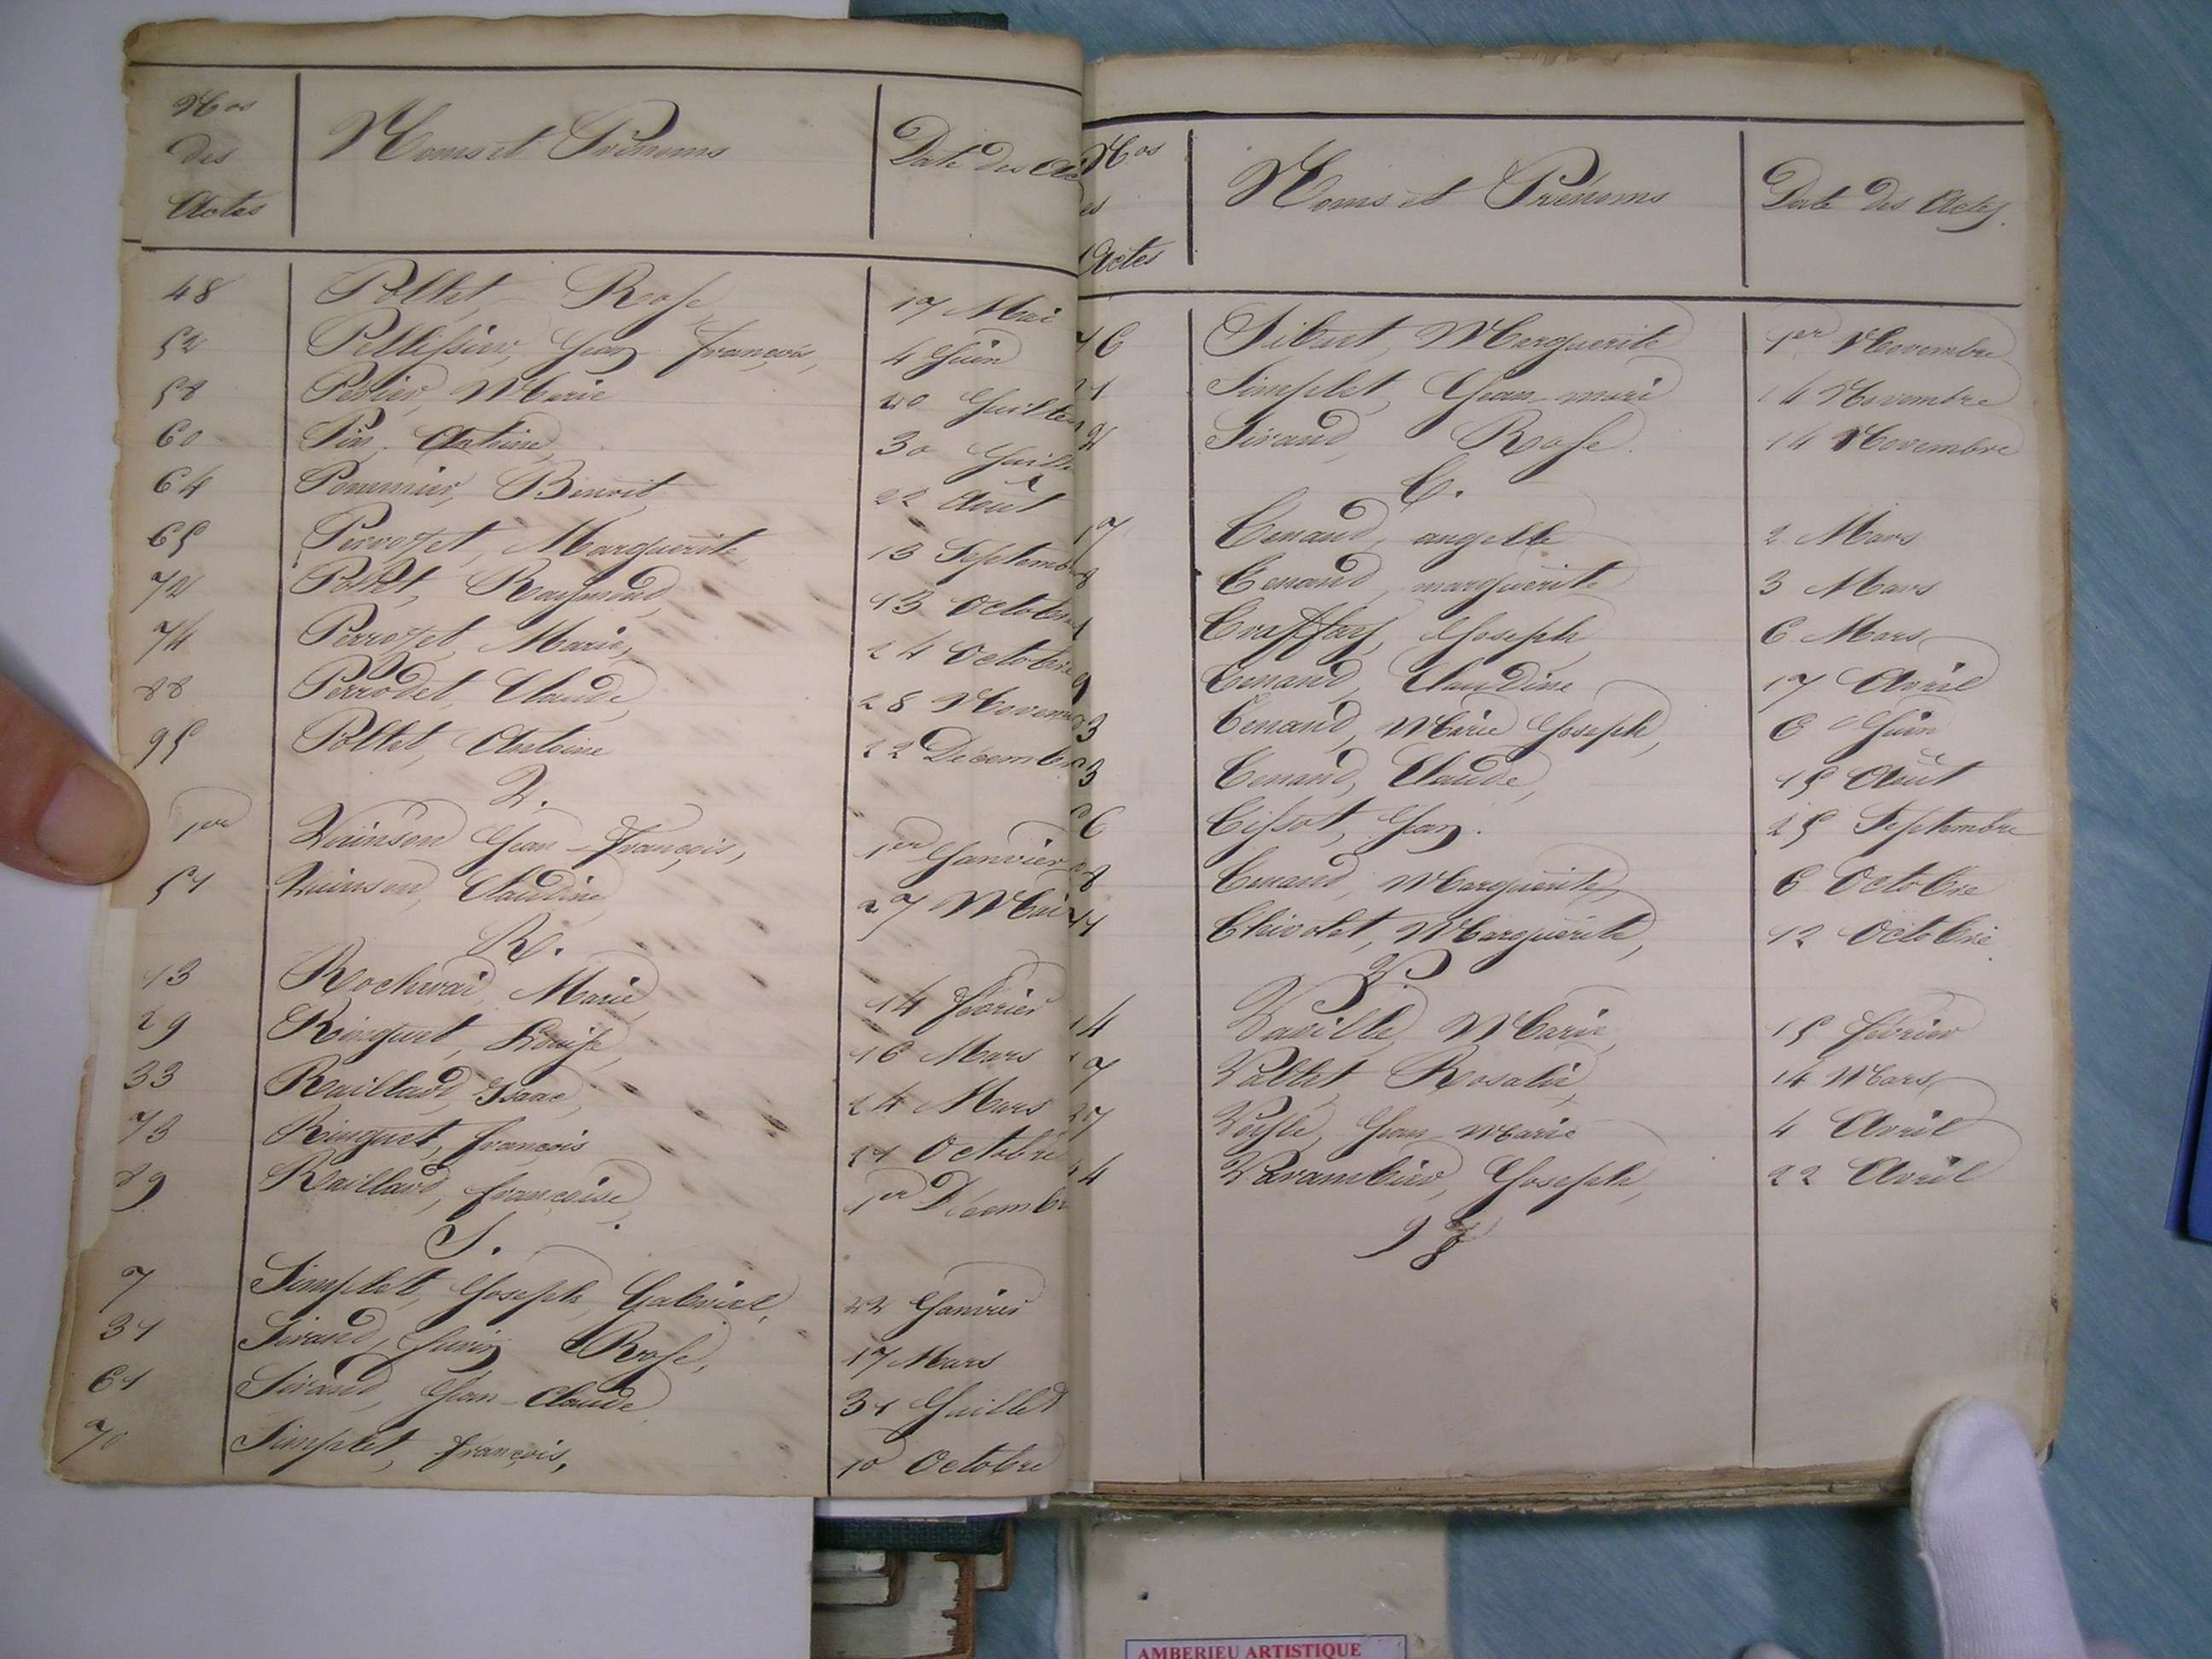 Nos des Actes
Noms et Prénoms
Date des Ac
48 Poltet, Rose, 17 Mai
52 Pellissier, Jean françois, 4 Juin
58 Perier, Marie 20 Juillet
60 Pin, Antoine, 30 Juill
64 Pommier, Benoit 22 Août
65 Perrozet, Marguerite 13 Septemb
72 Poltet, Raymond, 13 Octobre
74 Perrozet, Marie, 24 Octobre
88 Perrodet, Claude, 28 Novem
95 Poltet, Antoine 22 Décemb
Q.
1er Quinson Jean-François, 1er Janvier
51 Quinson, Claudine, 27 Mai
R.
13 Marie, 14 février
29 Ringuet, Louise, 16 Mars
33 Raillard, Isaac, 24 Mars
73 Ringuet, françois 21 Octobre
89 Raillard, françoise, 1er Décembr
S.
7 Simplet, Joseph Gabriel, 22 Janvier
31 Sirand, Rose, 17 Mars
61 Sirand, Jean-Claude, 31 Juillet
70 Simplet, françois, 10 Octobre
Nos
es
Actes
Noms et Prénoms
Date des Actes.
76 Sibert, Marguerite 1er Novembre
1 Simplet, Jean-marie 14 Novembre
2 Sirand, Rose. 14 Novembre
T.
17 Tenand, angelle 2 Mars
8 Tenand, marguerite 3 Mars
1 Joseph, 6 Mars
9 Tenand, Claudine 17 Avril
3 Tenand, Marie Joseph, 6 Juin
3 Tenand, Claude, 15 Août
6 Tissot, Jean. 25 Septembre
8 Tenand, Marguerite, 6 Octobre
71 Thivolet, Marguerite, 12 Octobre.
V.
14 Vaville, Marie, 15 février
7 Rosalie, 14 Mars
37 Jean Marie 4 Avril
4 Varambier, Joseph, 22 Avril
98
AMBERIEU ARTISTIQUE